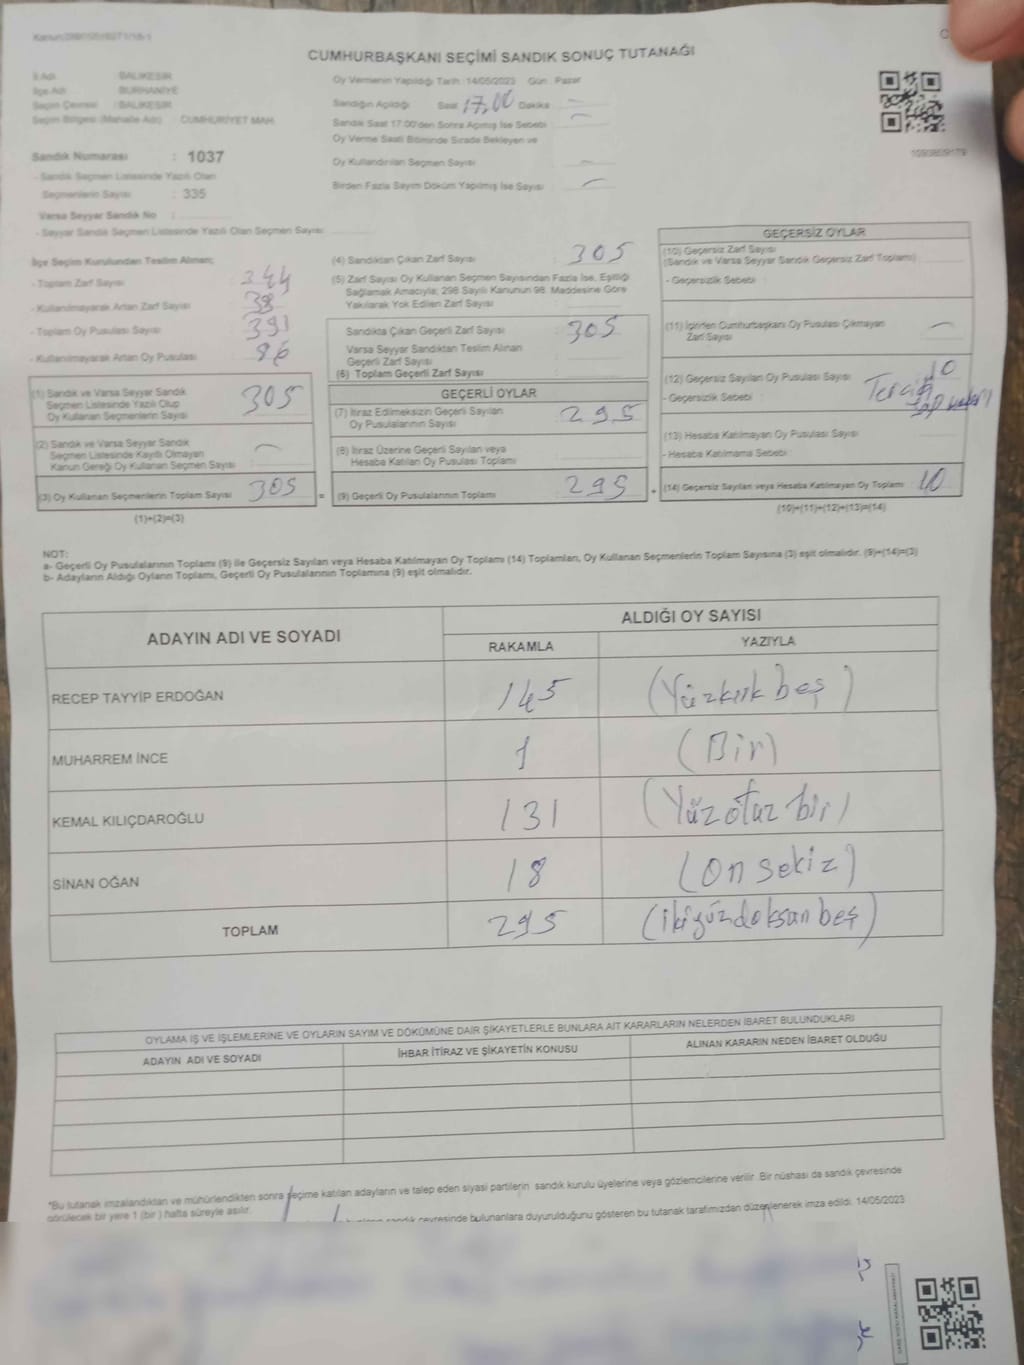 CUMHURBAŞKANI SEÇİMİ SANDIK SONUÇ TUTANAĞI
İl Adı : BALIKESİR
İlçe Adı : BURHANİYE
Seçim Çevresi : BALIKESİR
Seçim Bölgesi (Mahalle Adı) : CUMHURİYET MAH.
Sandık Numarası : 1037
- Sandık Seçmen Listesinde Yazılı Olan
Seçmenlerin Sayısı : 335
Varsa Seyyar Sandık No :
- Seyyar Sandık Seçmen Listesinde Yazılı Olan Seçmen Sayısı :
Oy Vermenin Yapıldığı Tarih : 14/05/2023 Gün : Pazar
Sandığın Açıldığı Saat 17,00 Dakika —
Sandık Saat 17:00'den Sonra Açılmış İse Sebebi —
Oy Verme Saati Bitiminde Sırada Bekleyen ve
Oy Kullandırılan Seçmen Sayısı —
Birden Fazla Sayım Döküm Yapılmış İse Sayısı —
1093809179
İlçe Seçim Kurulundan Teslim Alınan;
- Toplam Zarf Sayısı 344
- Kullanılmayarak Artan Zarf Sayısı 38
- Toplam Oy Pusulası Sayısı 391
- Kullanılmayarak Artan Oy Pusulası 86
(1) Sandık ve Varsa Seyyar Sandık
Seçmen Listesinde Yazılı Olup
Oy Kullanan Seçmenlerin Sayısı 305
(2) Sandık ve Varsa Seyyar Sandık
Seçmen Listesinde Kayıtlı Olmayan
Kanun Gereği Oy Kullanan Seçmen Sayısı —
(3) Oy Kullanan Seçmenlerin Toplam Sayısı 305 =
(1)+(2)=(3)
(4) Sandıktan Çıkan Zarf Sayısı 305
(5) Zarf Sayısı Oy Kullanan Seçmen Sayısından Fazla İse, Eşitliği
Sağlamak Amacıyla; 298 Sayılı Kanunun 98. Maddesine Göre
Yakılarak Yok Edilen Zarf Sayısı
Sandıkta Çıkan Geçerli Zarf Sayısı 305
Varsa Seyyar Sandıktan Teslim Alınan
Geçerli Zarf Sayısı
(6) Toplam Geçerli Zarf Sayısı
GEÇERLİ OYLAR
(7) İtiraz Edilmeksizin Geçerli Sayılan
Oy Pusulalarının Sayısı 295
(8) İtiraz Üzerine Geçerli Sayılan veya
Hesaba Katılan Oy Pusulası Toplamı
(9) Geçerli Oy Pusulalarının Toplamı 295 +
GEÇERSİZ OYLAR
(10) Geçersiz Zarf Sayısı
(Sandık ve Varsa Seyyar Sandık Geçersiz Zarf Toplamı)
- Geçersizlik Sebebi
(11) İçinden Cumhurbaşkanı Oy Pusulası Çıkmayan
Zarf Sayısı —
(12) Geçersiz Sayılan Oy Pusulası Sayısı 10
- Geçersizlik Sebebi :
(13) Hesaba Katılmayan Oy Pusulası Sayısı
- Hesaba Katılmama Sebebi :
(14) Geçersiz Sayılan veya Hesaba Katılmayan Oy Toplamı 10
(10)+(11)+(12)+(13)=(14)
NOT:
a- Geçerli Oy Pusulalarının Toplamı (9) ile Geçersiz Sayılan veya Hesaba Katılmayan Oy Toplamı (14) Toplamları, Oy Kullanan Seçmenlerin Toplam Sayısına (3) eşit olmalıdır. (9)+(14)=(3)
b- Adayların Aldığı Oyların Toplamı, Geçerli Oy Pusulalarının Toplamına (9) eşit olmalıdır.
ADAYIN ADI VE SOYADI
ALDIĞI OY SAYISI
RAKAMLA YAZIYLA
RECEP TAYYİP ERDOĞAN 145 (Yüzkırk beş)
MUHARREM İNCE 1 (Bir)
KEMAL KILIÇDAROĞLU 131 (Yüz otuz bir)
SİNAN OĞAN 18 (On sekiz)
TOPLAM 295 (ikiyüzdoksan beş)
OYLAMA İŞ VE İŞLEMLERİNE VE OYLARIN SAYIM VE DÖKÜMÜNE DAİR ŞİKAYETLERLE BUNLARA AİT KARARLARIN NELERDEN İBARET BULUNDUKLARI
ADAYIN ADI VE SOYADI İHBAR İTİRAZ VE ŞİKAYETİN KONUSU ALINAN KARARIN NEDEN İBARET OLDUĞU
*Bu tutanak imzalandıktan ve mühürlendikten sonra seçime katılan adayların ve talep eden siyasi partilerin sandık kurulu üyelerine veya gözlemcilerine verilir. Bir nüshası da sandık çevresinde
görülecek bir yere 1 (bir) hafta süreyle asılır.
sandık çevresinde bulunanlara duyurulduğunu gösteren bu tutanak tarafımızdan düzenlenerek imza edildi. 14/05/2023